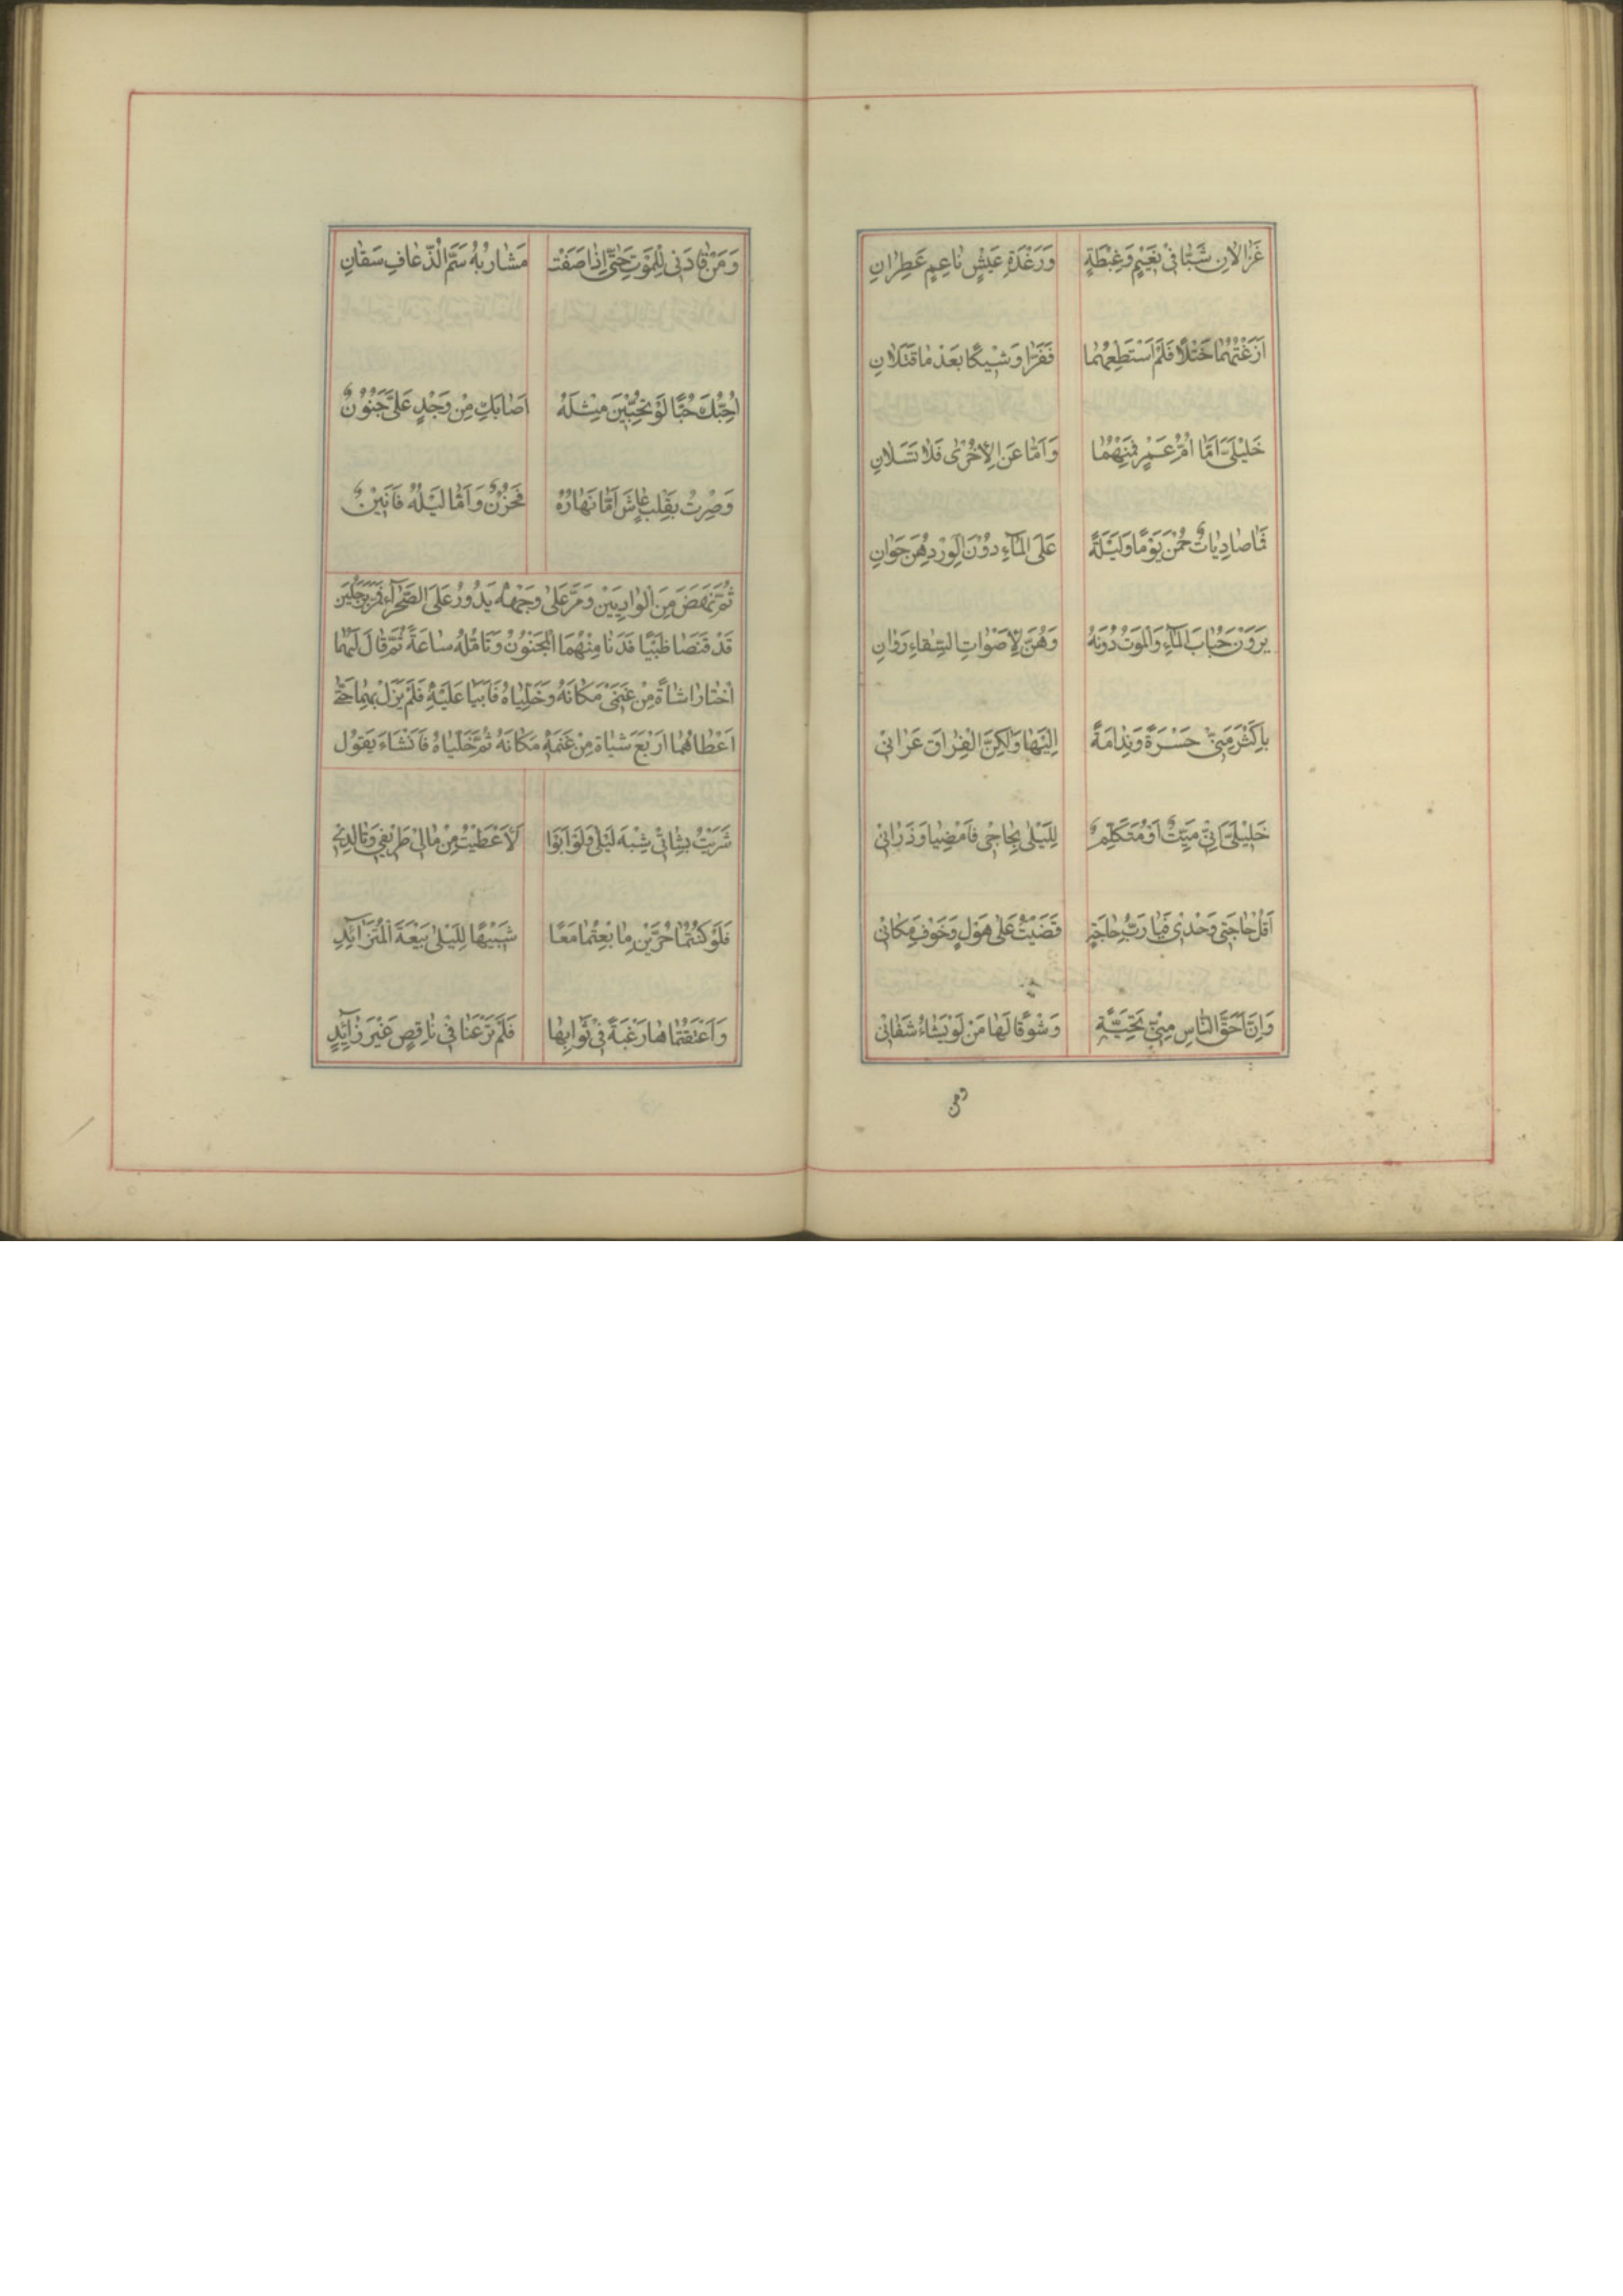 غَزَالَانِ شَبَّا فِي نَعِيمٍ وَغِبْطَةٍ وَرَغْدَةِ عَيْشٍ نَاعِمٍ عَطِرَانِ
اَرَغْتُهُمَا خَتْلًا فَلَمْ اَسْتَطِعْهُمَا فَفَرَّا وَشِيكًا بَعْدَ مَا قَتَلَانِ
خَلِيلَيَّ اَمَّا اُمُّ عَمْرٍو فَمِنْهُمَا وَاَمَّا عَنِ الْاُخْرٰى فَلَا تَسَلَانِ
فَمَا صَادِيَاتٌ حُمْنَ يَوْمًا وَلَيْلَةً عَلَى الْمَآءِ دُونَ الْوِرْدِ هُنَّ حَوَانِ
يَرَوْنَ حُبَابَ الْمَآءِ وَالْمَوْتُ دُونَهُ وَهُنَّ لِاَصْوَاتِ السِّقَاءِ رَوَانِ
بِاَكْثَرَ مِنِّي حَسْرَةً وَنِدَامَةً اِلَيْهَا وَلٰكِنَّ الْفِرَاقَ عَرَانِي
خَلِيلَيَّ اِنِّي مَيِّتٌ اَوْ مُتَكَلِّمٌ لِلَيْلٰى بِحَاجِي فَامْضِيَا وَذَرَانِي
اَقُلْ حَاجَتِي وَحْدِي فَيَا رُبَّ حَاجَةٍ قَضَيْتُ عَلٰى هَوْلٍ وَخَوْفِ مَكَانِي
وَاِنَّ اَحَقَّ النَّاسِ مِنِّي تَحِيَّةً وَشَوْقًا لَهَا مَنْ لَوْ يَشَاءُ شَفَانِي
ومن
وَمَنْ قَادَنِي لِلْمَوْتِ حَتّٰى اِذَا صَفَتْ مَشَارِبُهُ سَمَّ الذُّعَافِ سَقَانِ
اُحِبُّكِ حُبًّا لَوْ تُحِبِّينَ مِثْلَهُ اَصَابَكِ مِنْ وَجْدٍ عَلَيَّ جُنُونٌ
وَصِرْتُ بِقَلْبٍ عَاشَ اَمَّا نَهَارُهُ فَحُزْنٌ وَاَمَّا لَيْلُهُ فَاَنِينٌ
ثُمَّ نَهَضَ مِنَ الْوَادِيَيْنِ وَمَرَّ عَلٰى وَجْهِهِ يَدُورُ عَلَى الصَّحْرَآءِ فَمَرَّ بِرَجُلَيْنِ
قَدْ قَنَصَا ظَبْيًا فَدَنَا مِنْهُمَا الْمَجْنُونُ وَتَاَمَّلَهُ سَاعَةً ثُمَّ قَالَ لَهُمَا
اخْتَارَا شَاةً مِنْ غَنَمِي مَكَانَهُ وَخَلِّيَاهُ فَاَبَيَا عَلَيْهِ فَلَمْ يَزَلْ بِهِمَا حَتّٰى
اَعْطَاهُمَا اَرْبَعَ شِيَاةٍ مِنْ غَنَمِهِ مَكَانَهُ ثُمَّ خَلَّيَاهُ فَاَنْشَاءَ يَقُولُ
شَرَيْتُ بِشَاتِي شِبْهَ لَيْلٰى وَلَوْ اَبَوْا لَاَعْطَيْتُ مِنْ مَالِي طَرِيفِي وَتَالِدِي
فَلَوْ كُنْتُمَا حُرَّيْنِ مَا بِعْتُمَا مَعًا شَبِيهًا لِلَيْلٰى بَيْعَةَ الْمُتَزَآيِدِ
وَاَعْتَقْتُمَاهَا رَغْبَةً فِي ثَوَابِهَا فَلَمْ تَرْغَبَا فِي نَاقِصٍ غَيْرَ زَآئِدٍ